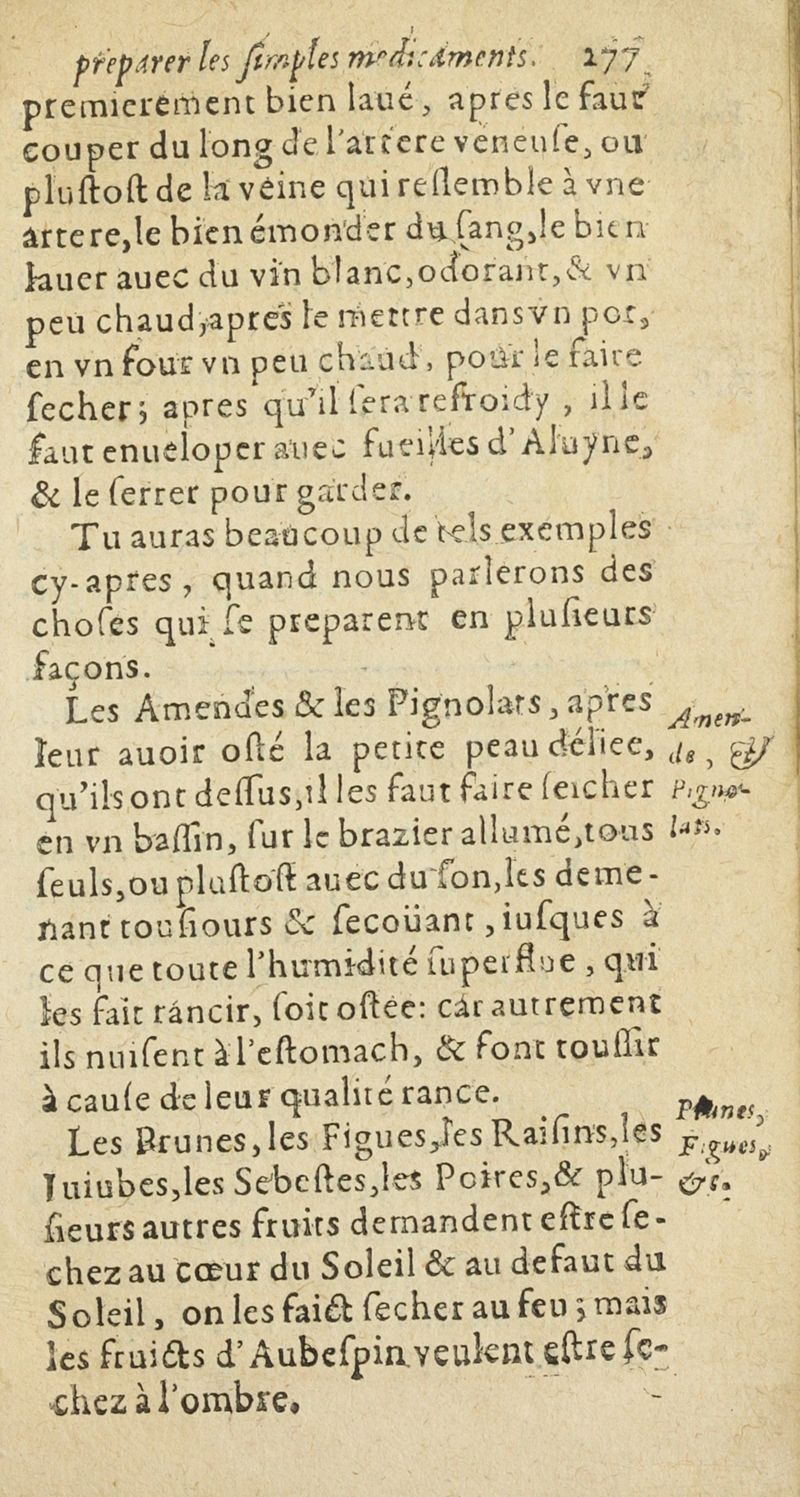 preparer les ſimples medicaments. 277
premierement bien laué, apres le faut
couper du long de l'artere veneuſe, ou
pluſtoſt de la veine qui reſſemble à vne
artere, le bien émonder du ſang, le bien
lauer auec du vin blanc, odorant, & vn
peu chaud, apres le mettre dans vn pot,
en vn four vn peu chaud, pour le faire
ſecher; apres qu'il ſera refroidy, il le
faut enueloper auec fueilles d'Aluyne,
& le ſerrer pour garder.
Tu auras beaucoup de tels exemples
cy-apres, quand nous parlerons des
choſes qui ſe preparent en pluſieurs
façons.
Les Amendes & les Pignolats, apres
leur auoir oſté la petite peau déliee,
qu'ils ont deſſus, il les faut faire ſeicher
en vn baſſin, ſur le brazier allumé, tous
ſeuls, ou pluſtoſt auec du ſon, les deme-
nant touſiours & ſecoüant, iuſques à
ce que toute l'humidité ſuperfluë, qui
les fait rancir, ſoit oſtée: car autrement
ils nuiſent à l'eſtomach, & font touſſir
à cauſe de leur qualité rance.
Les Prunes, les Figues, les Raiſins, les
Iuiubes, les Sebeſtes, les Poires, & plu-
ſieurs autres fruits demandent eſtre ſe-
chez au cœur du Soleil & au defaut du
Soleil, on les faict ſecher au feu; mais
les fruicts d'Aubeſpin veulent eſtre ſe-
chez à l'ombre.
Amen-
de, &
Pigno-
lats.
Prunes,
Figues,
&c.